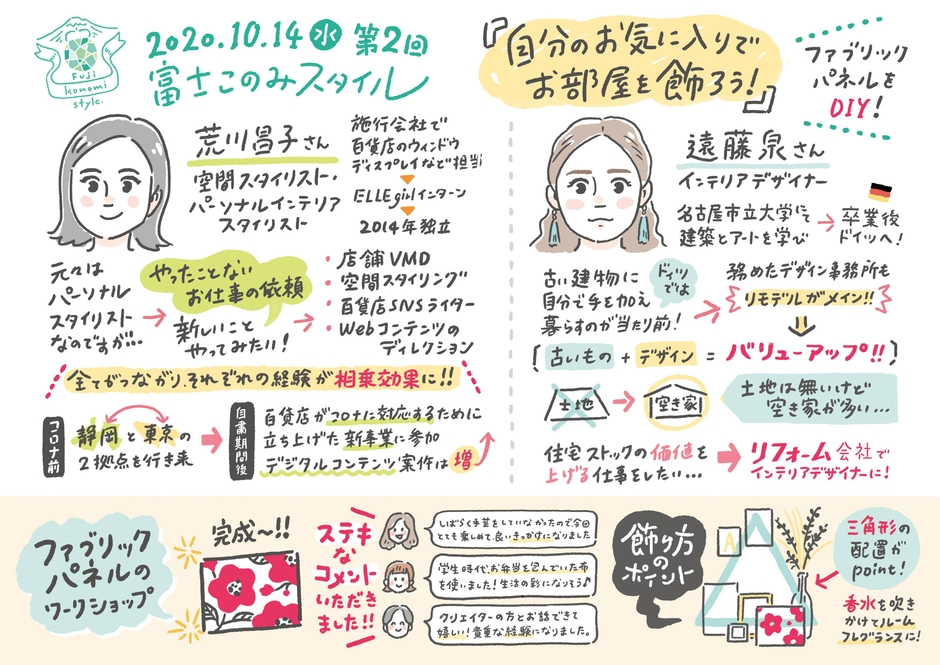 Fuji
Konomi
style.
2020.10.14 水 第2回
富士このみスタイル
『自分のお気に入りで
お部屋を飾ろう!』
ファブリック
パネルを
DIY!
荒川昌子さん
空間スタイリスト・
パーソナルインテリア
スタイリスト
施行会社で
百貨店のウィンドウ
ディスプレイなど担当
ELLE girlインターン
2014年独立
元々は
パーソナル
スタイリスト
なのですが…
やったことない
お仕事の依頼
新しいこと
やってみたい!
・店舗VMD
・空間スタイリング
・百貨店SNSライター
・Webコンテンツの
ディレクション
全てがつながり、それぞれの経験が相乗効果に!!
コロナ前
静岡と東京の
2拠点を行き来
自粛期間後
百貨店がコロナに対応するために
立ち上げた新事業に参加
デジタルコンテンツ案件は増
遠藤泉さん
インテリアデザイナー
名古屋市立大学にて
建築とアートを学び
卒業後
ドイツへ!
古い建物に
自分で手を加え
暮らすのが当たり前!
ドイツ
では
務めたデザイン事務所も
リモデルがメイン!!
(古いもの + デザイン = バリューアップ!!)
土地
空き家
土地は無いけど
空き家が多い…
住宅ストックの価値を
上げる仕事をしたい…
リフォーム会社で
インテリアデザイナーに!
ファブリック
パネルの
ワークショップ
完成〜!!
ステキ
な
コメント
いただき
ました!!
しばらく手芸をしていなかったので今回
とても楽しめて、良いきっかけになりました
学生時代、お弁当を包んでいた布
を使いました!生活の彩になりそう♪
クリエイターの方とお話できて
嬉しい!貴重な経験になりました。
飾り方
の
ポイント
A
三角形の
配置が
point!
香水を吹き
かけてルーム
フレグランスに!